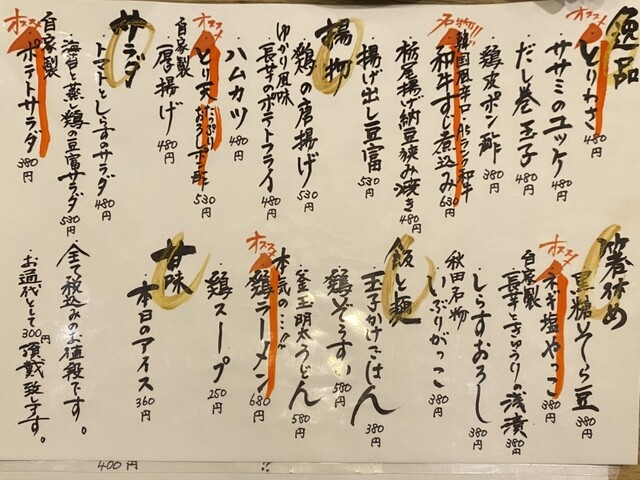 逸品
オススメ
・とりわさ 480円
・ササミのユッケ 480円
・だし巻玉子 480円
・鶏皮ポン酢 380円
名物!!!
韓国風辛口・A5ランク和牛
・和牛すじ煮込み 630円
・栃尾揚げ納豆狭み焼き 480円
・揚げ出し豆富 480円
揚物
・鶏の唐揚げ 530円
ゆかり風味
・長芋のポテトフライ 480円
・ハムカツ 480円
オススメ
・とり天 たっぷりおろしポン酢 530円
自家製
・厚揚げ 480円
サラダ
・トマトとしらすのサラダ 480円
・海苔と蒸し鶏の豆富サラダ 530円
オススメ
自家製
・ポテトサラダ 380円
箸休め
・黒糖そら豆 380円
オススメ
・ネギ塩やっこ 380円
自家製
・長芋ときゅうりの浅漬 380円
・しらすおろし 380円
秋田名物
・いぶりがっこ 380円
飯と麺
・玉子かけごはん 380円
・鶏ぞうすい 580円
・釜玉明太うどん 580円
本気の…!!
オススメ
・鶏ラーメン 680円
・鶏スープ 250円
甘味
・本日のアイス 360円
・全て税込みのお値段です。
・お通代として300円頂戴致します。
400円